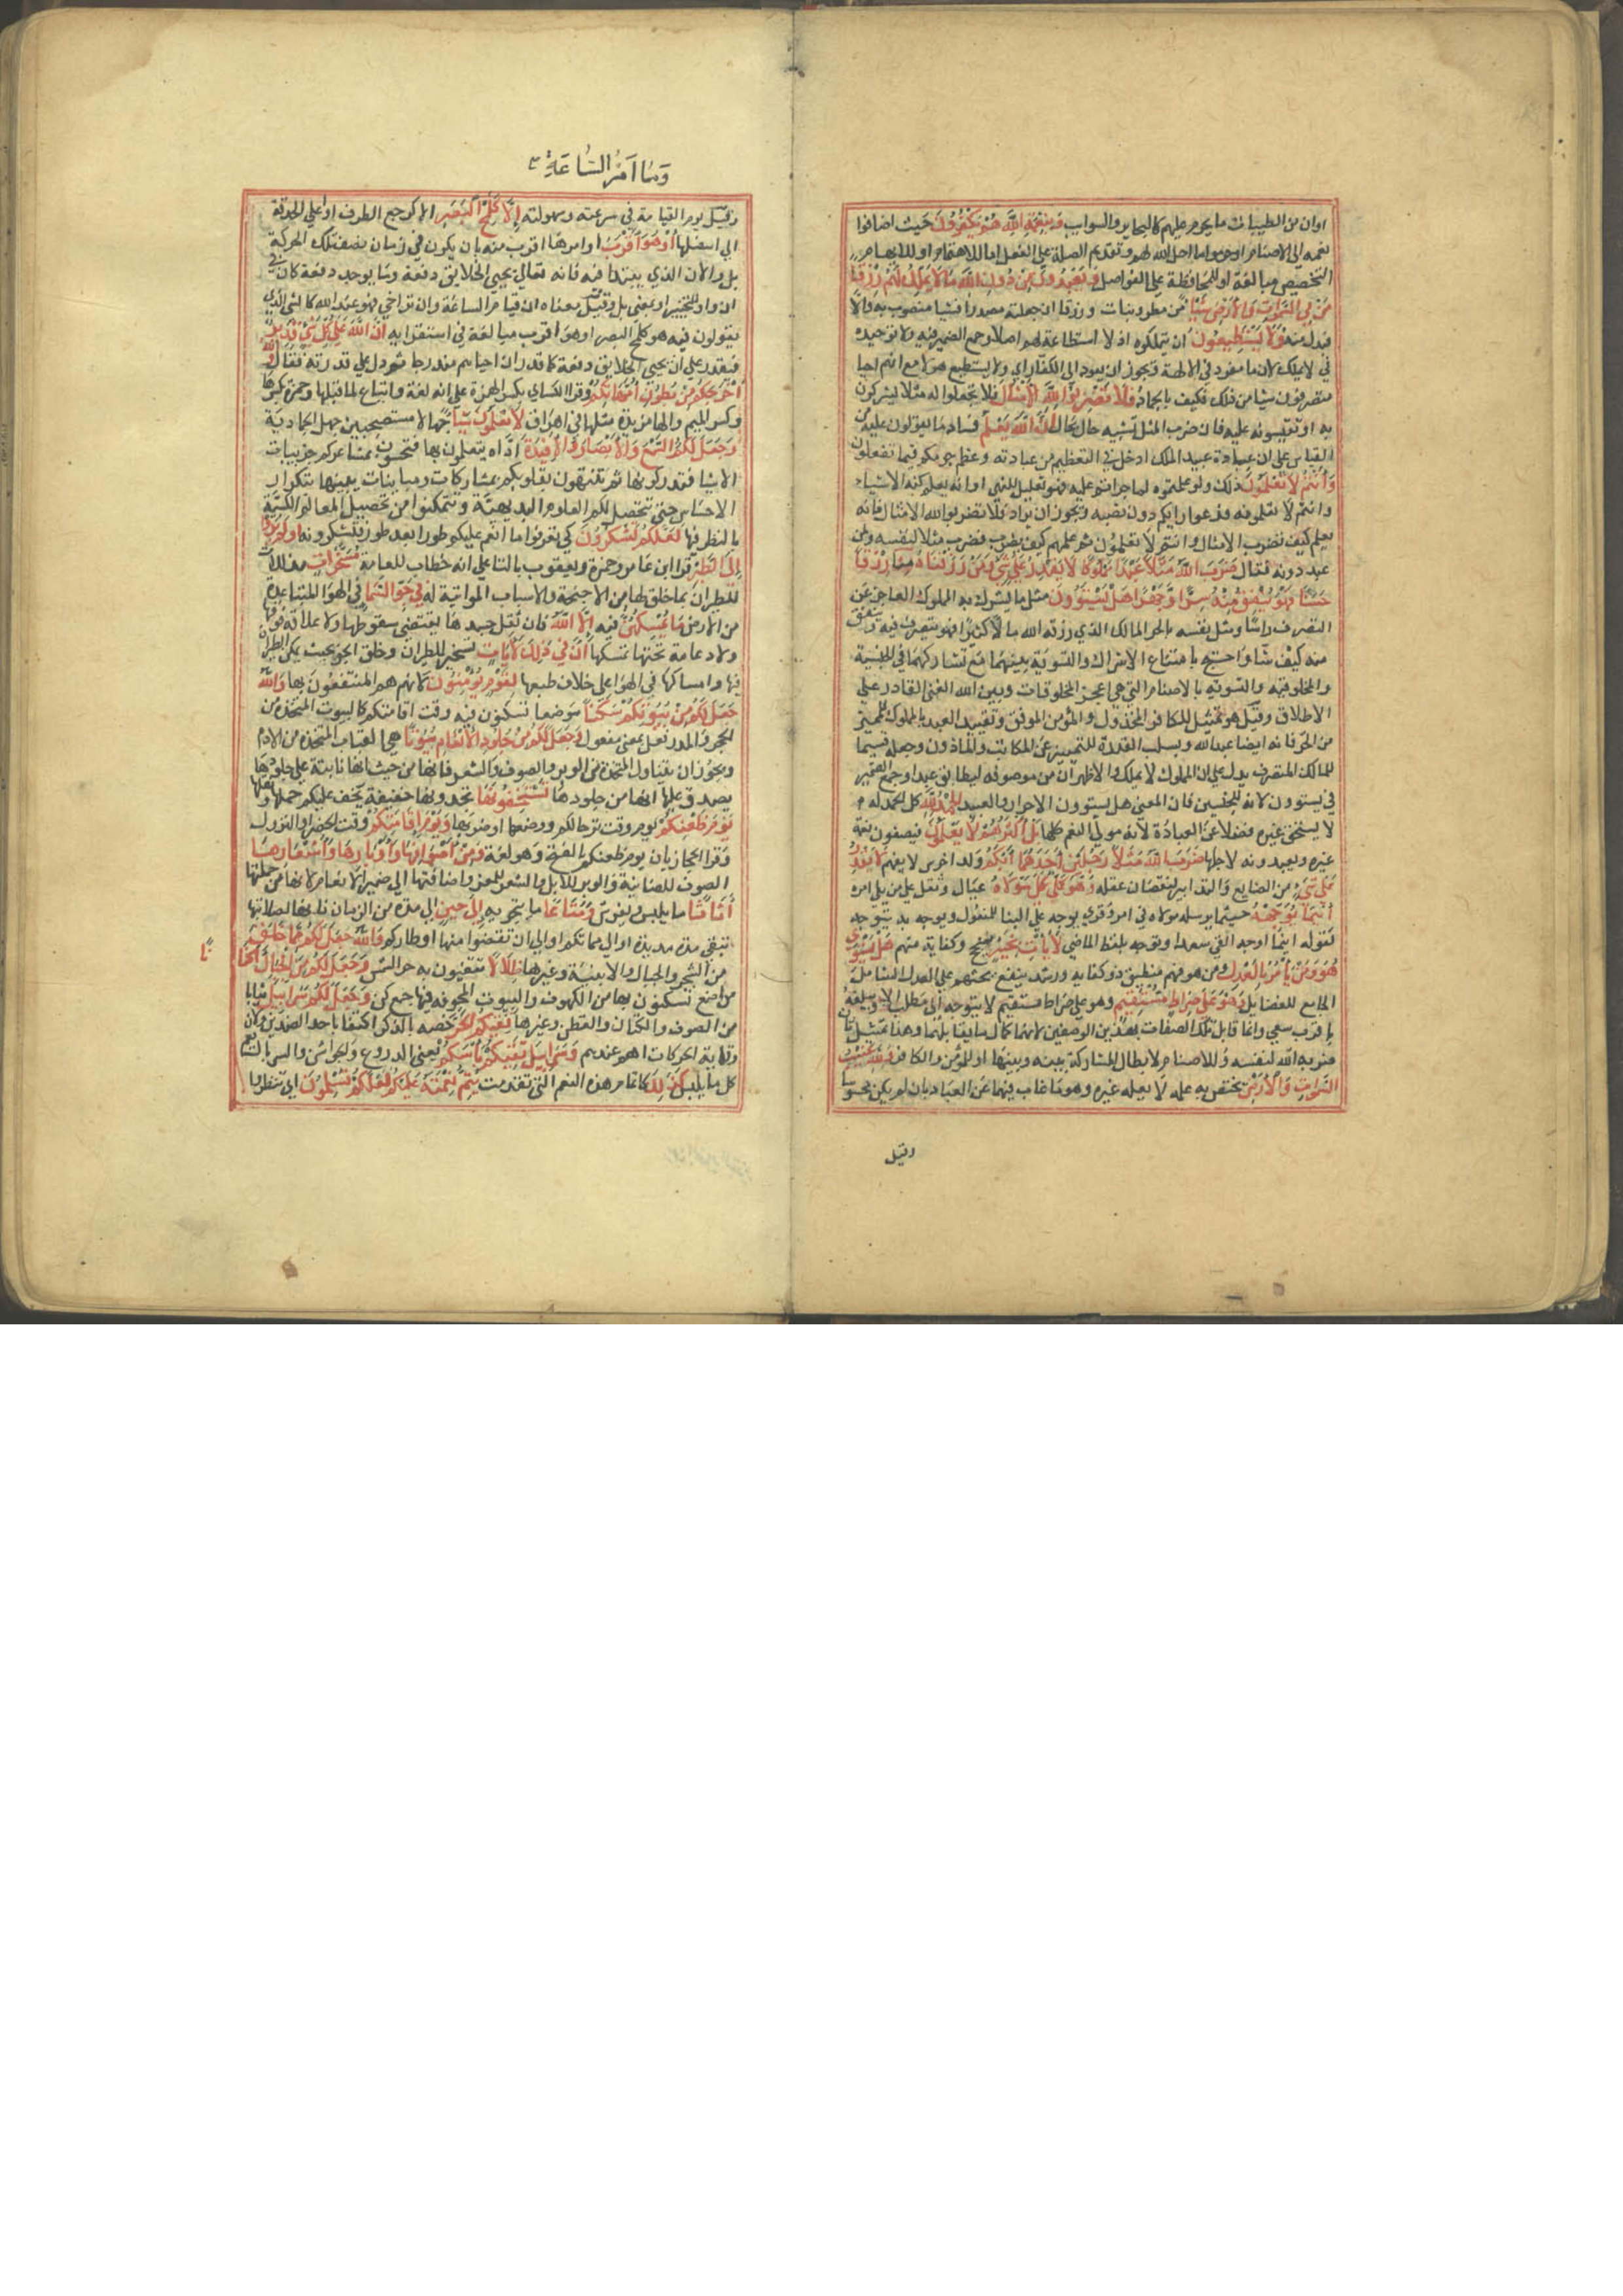 او ان من الطيبات ما يحرم عليهم كالبحاير والسوايب وبنعمة الله هم يكفرون حيث اضافوا
نعمه الى الاصنام او حرموا ما احل الله لهم وتقديم الصلة على الفعل اما للاهتمام او للايهام
التخصيص مبالغة او للمحافظة على الفواصل ويعبدون من دون الله ما لا يملك لهم رزقا
من السموات والارض شيئا من مطر ونبات ورزقا ان جعلته مصدرا فشيا منصوب به والا
فبدل منه ولا يستطيعون ان يتملكوه اذ لا استطاعة لهم اصلا وجمع الضمير فيه وتوحيده
في لا يملك لان ما مفرد في الالهة ويجوز ان يعود الى الكفار اي ولا يستطيع هولا مع انهم احيا
متصرفون شيا من ذلك فكيف بالجماد فلا تضربوا لله الامثال فلا تجعلوا له مثلا تشركون
به او تقيسونه عليه فان ضرب المثل تشبيه حال بحال ان الله يعلم فساد ما تعولون عليه من
القياس على ان عبادة عبيد الملك ادخل في التعظيم من عبادته وعظم جرمكم فيما تفعلون
وانتم لا تعلمون ذلك ولو علمتموه لما جراتم عليه فهو تعليل للنهي او انه يعلم كنه الاشياء
وانتم لا تعلمونه فدعوا رايكم دون نصه ويجوز ان يراد فلا تضربوا لله الامثال فانه
يعلم كيف تضرب الامثال وانتم لا تعلمون ثم علمهم كيف يضرب فضرب مثلا لنفسه ولمن
عبد دونه فقال ضرب الله مثلا عبدا مملوكا لا يقدر على شي ومن رزقناه منا رزقا
حسنا فهو ينفق منه سرا وجهرا هل يستوون مثل ما يشرك به بالمملوك العاجز عن
التصرف راسا ومثل نفسه بالحر المالك الذي رزقه الله مالا كثيرا فهو يتصرف فيه وينفق
منه كيف شا واحتج بامتناع الاشتراك والتسوية بينهما مع تشاركهما في الجنسية
والمخلوقية والتسوية بالاصنام التي هي اعجز المخلوقات وبين الله الغني القادر على
الاطلاق وقيل هو تمثيل للكافر المخذول والمؤمن الموفق وتقييد العبد بالمملوك للتمييز
من الحر فانه ايضا عبد الله وبسلب القدرة للتمييز عن المكاتب والماذون وجعله قسيما
للمالك المتصرف يدل على ان المملوك لا يملك والاظهر ان من موصوفه ليطابق عبدا وجمع الضمير
في يستوون لانه للجنسين فان المعنى هل يستوون الاحرار والعبيد الحمد لله كل الحمد له
لا يستحقه غيره فضلا عن العبادة لانه مولى النعم كلها بل اكثرهم لا يعلمون فيضيفون نعمه
غيره ويعبدونه لاجلها ضرب الله مثلا رجلين احدهما ابكم ولد اخرس لا يفهم لا يقدر
على شي من الصنايع والتدابير لنقصان عقله وهو كل على مولاه عيال وثقل على من يلي امره
اينما يوجهه حيثما يرسله مولاه في امر وقري يوجه على البنا للمفعول ويوجه بمعنى يتوجه
كقوله اينما اوجه الق سعدا وتوجه بلفظ الماضي لا يات بخير بنجح وكفاية مهم هل يستوي
هو ومن يامر بالعدل ومن هو فهم منطيق ذو كفاية ورشد ينفع بحثهم على العدل الشامل
الجامع للفضايل وهو على صراط مستقيم وهو على صراط مستقيم لا يتوجه الى مطلب الا ويبلغه
باقرب سعي وانما قابل تلك الصفات بهذين الوصفين لانهما كمال ما يقابلهما وهذا تمثيل ثان
ضربه الله لنفسه وللاصنام لابطال المشاركة بينه وبينها او للمؤمن والكافر ولله غيب
السموات والارض يختص به علمه لا يعلمه غيره وهو ما غاب فيهما عن العباد بان لم يكن محسوسا
وقيل
وما امر الساعة
وقيل يوم القيامة في سرعته وسهولته الا كلمح البصر الا كرجع الطرف من اعلى الحدقة
الى اسفلها او هو اقرب او امرها اقرب منه بان يكون في زمان نصف تلك الحركة
بل والآن الذي يبتدا فيه فانه تعالى يحيي الخلايق دفعة وما يوجد دفعة كان في
ان واو للتخيير او بمعنى بل وقيل معناه ان قيام الساعة وان تراخى فهو عند الله كالشي الذي
يقولون فيه هو كلمح البصر او هو اقرب مبالغة في استقرابه ان الله على كل شي قدير
فيقدر على ان يحيي الخلايق دفعة كما قدر ان احياهم متدرجا ثم دل على قدرته فقال والله
اخرجكم من بطون امهاتكم وقرا الكساي بكسر الهمزة على انه لغة واتباع لما قبلها وحمزة بكسرها
وكسر الميم والها مزيدة مثلها في اهراق لا تعلمون شيا جهالا مستصحبين جهل الجمادية
وجعل لكم السمع والابصار والافئدة اداة تتعلمون بها فتحسون بمشاعركم جزييات
الاشيا فتدركونها ثم تتنبهون بقلوبكم بمشاركات ومباينات بينها بتكرار
الاحساس حتى تتحصل لكم العلوم البديهية وتتمكنوا من تحصيل المعالم الكسبية
بالنظر فيها لعلكم تشكرون كي تعرفوا ما انعم عليكم طورا بعد طور فتشكرونه اولم يروا
الى الطير قرا ابن عامر وحمزة ويعقوب بالتا على انه خطاب للعامة مسخرات مذللات
للطيران بما خلق لها من الاجنحة والاسباب المواتية له في جو السما في الهوا المتباعد
من الارض ما يمسكهن فيه الا الله فان ثقل جسدها يقتضي سقوطها ولا علاقة فوقها
ولا دعامة تحتها تمسكها ان في ذلك لايات تسخير للطيران وخلق الجو بحيث يمكن الطيران
فيها وامساكها في الهوا على خلاف طبعها لقوم يؤمنون لانهم هم المنتفعون بها والله
جعل لكم من بيوتكم سكنا موضعا تسكنون فيه وقت اقامتكم كالبيوت المتخذة من
الحجر والمدر فعل بمعنى مفعول وجعل لكم من جلود الانعام بيوتا هي القباب المتخذة من الادم
ويجوز ان يتناول المتخذة من الوبر والصوف والشعر فانها من حيث انها نابتة على جلودها
يصدق عليها انها من جلودها تستخفونها تجدونها خفيفة يخف عليكم حملها ونقلها
يوم ظعنكم يوم وقت ترحالكم ووضعها او ضربها ويوم اقامتكم وقت الحضر او النزول
وقرا الحجازيان يوم ظعنكم بالفتح وهو لغة ومن اصوافها واوبارها واشعارها
الصوف للضاينة والوبر للابل والشعر للمعز واضافتها الى ضمير الانعام لانها من جملتها
اثاثا ما يلبس ويفرش ومتاعا ما يتجر به الى حين الى مدة من الزمان فانها لصلابتها
تبقى مدة مديدة او الى مماتكم او الى ان تقضوا منها اوطاركم والله جعل لكم مما خلق
من الشجر والجبال والابنية وغيرها ظلالا تتقيون به حر الشمس وجعل لكم من الجبال اكنانا
مواضع تسكنون بها من الكهوف والبيوت المجوفة فيها جمع كن وجعل لكم سرابيل ثيابا
من الصوف والكتان والقطن وغيرها تقيكم الحر خصه بالذكر اكتفا باحد الضدين ولان
وقاية الحر كانت اهم عندهم وسرابيل تقيكم باسكم يعني الدروع والجواشن والسربال يعم
كل ما يلبس كذلك كاتمام هذه النعم التي تقدمت يتم نعمته عليكم لعلكم تسلمون اي تنظرون